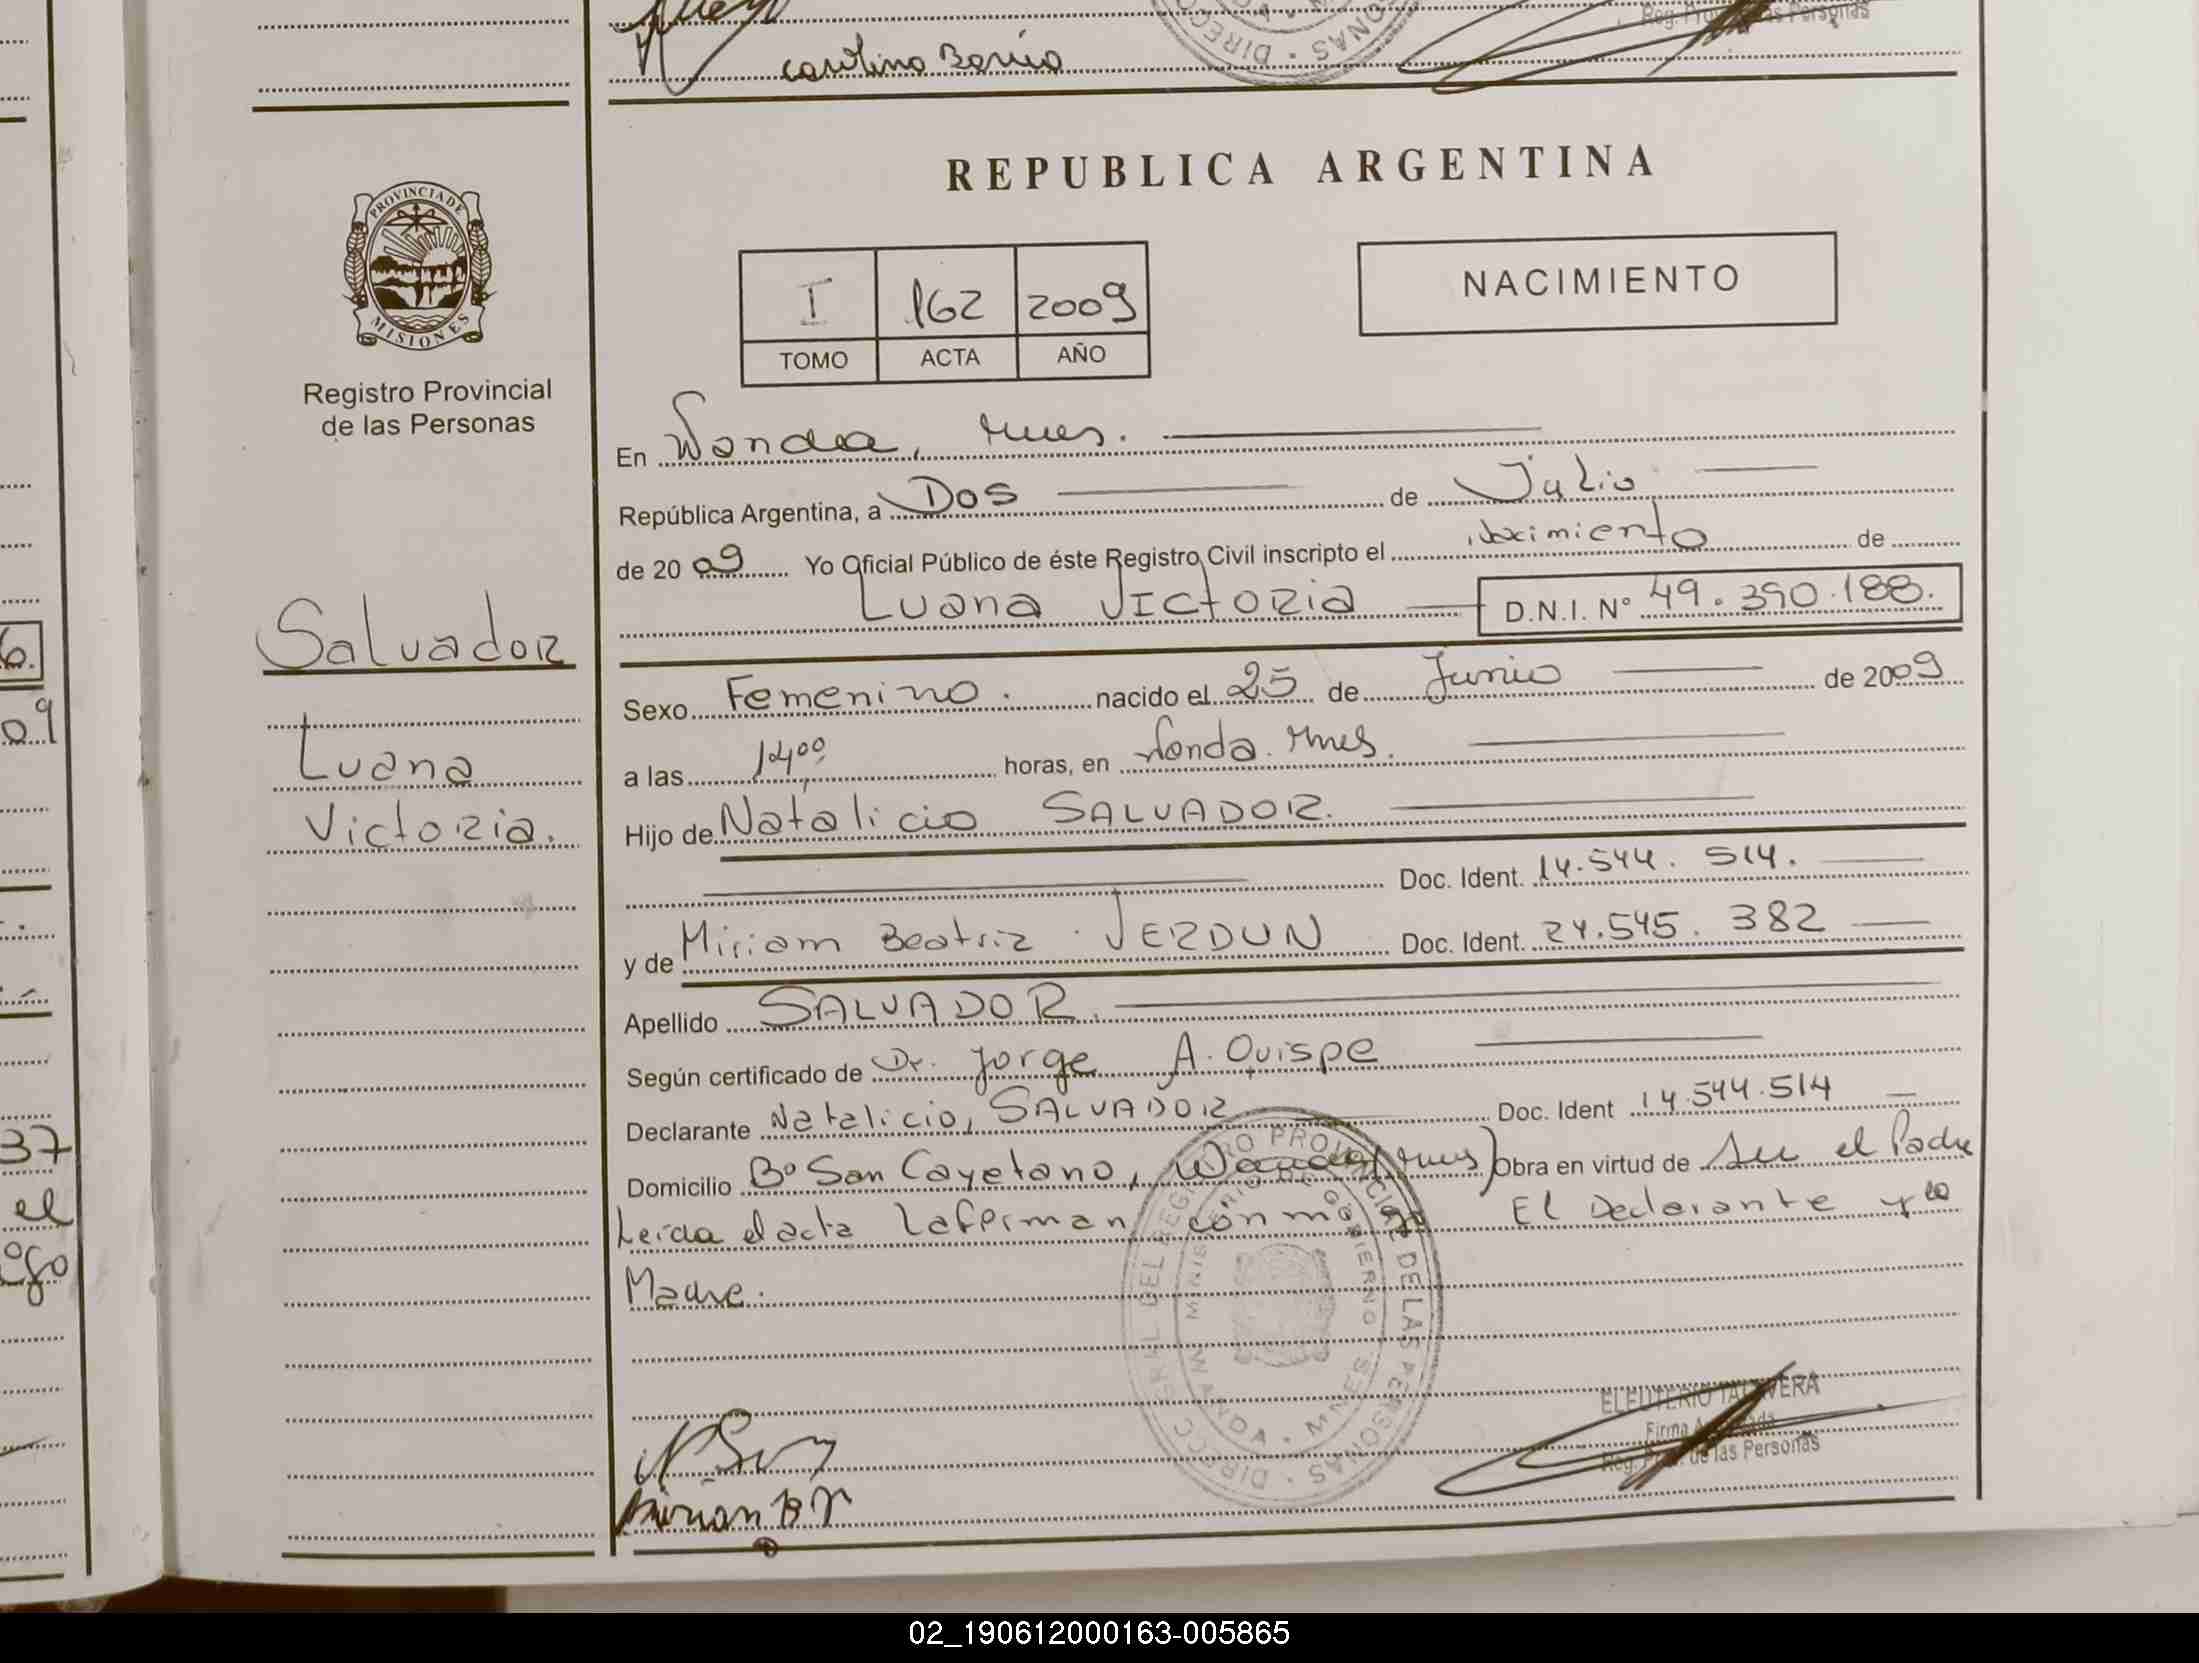 Carolina
Reg. Prov. de las Personas
REPUBLICA ARGENTINA
PROVINCIA DE
MISIONES
Registro Provincial
de las Personas
I 162 2009
TOMO ACTA AÑO
NACIMIENTO
En Wanda, Mnes.
República Argentina, a Dos de Julio
de 2009 Yo Oficial Público de éste Registro Civil inscripto el Nacimiento de
Luana VICTORIA D.N.I. Nº 49.390.188.
Salvador
Luana
Victoria.
Sexo Femenino. nacido el 25 de Junio de 2009
a las 14,00 horas, en Wanda. Mnes.
Hijo de Natalicio SALVADOR.
Doc. Ident. 14.544.514.
y de Miriam Beatriz VERDUN Doc. Ident. 24.545.382
Apellido SALVADOR.
Según certificado de Dr. Jorge A. Quispe
Declarante Natalicio, SALVADOR Doc. Ident 14.544.514
Domicilio Bº San Cayetano, Wanda (Mnes) Obra en virtud de ser el Padre
Leída el acta la firman conmigo El Declarante y la
Madre.
DIRECC. GRAL DEL REGISTRO PROVINCIAL DE LAS PERSONAS
MINISTERIO DE GOBIERNO
WANDA - MNES.
ELEUTERIO TALAVERA
Firma Autorizada
Reg. Prov. de las Personas
Mirian B V
6.
09
37
el
02_190612000163-005865